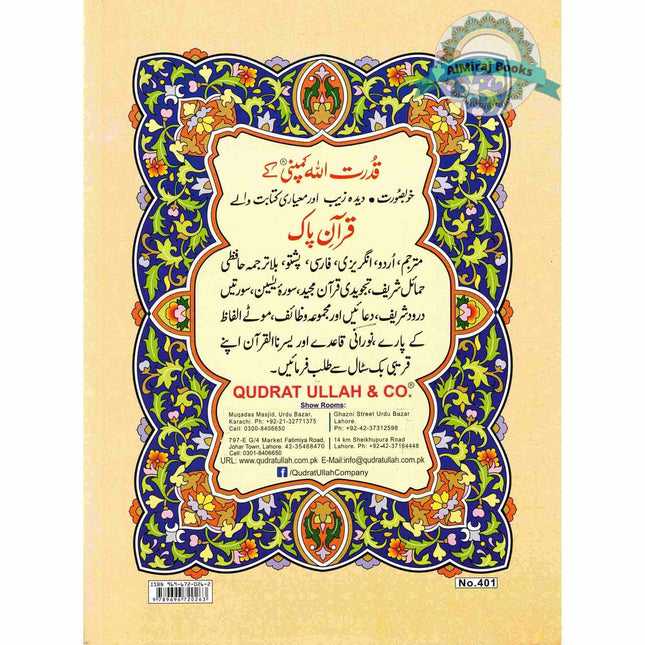 AlMiraj Books
قدرت اللہ کمپنی® کے
خوبصورت • دیدہ زیب اور معیاری کتابت والے
قرآنِ پاک
مترجم، اُردو، انگریزی، فارسی، پشتو، بلا ترجمہ حافظی
حمائل شریف، تجویدی قرآن مجید، سورۂ یٰسین، سورتیں
درود شریف، دعائیں اور مجموعہ وظائف، موٹے الفاظ
کے پارے، نورانی قاعدے اور یسرنا القرآن اپنے
قریبی بک سٹال سے طلب فرمائیں۔
QUDRAT ULLAH & CO.®
Show Rooms:
Muqadas Masjid, Urdu Bazar,
Karachi. Ph: +92-21-32771375
Cell: 0300-8406650
Ghazni Street Urdu Bazar
Lahore.
Ph: +92-42-37312598
797-E G/4 Market Fatimiya Road,
Johar Town, Lahore. 42-35468470
Cell: 0301-8406650
14 km Sheikhupura Road
Lahore. +92-42-37164448
URL: www.qudratullah.com.pk E-Mail:info@qudratullah.com.pk
f /QudratUllahCompany
ISBN 969-672-026-2
9789696720263
No.401